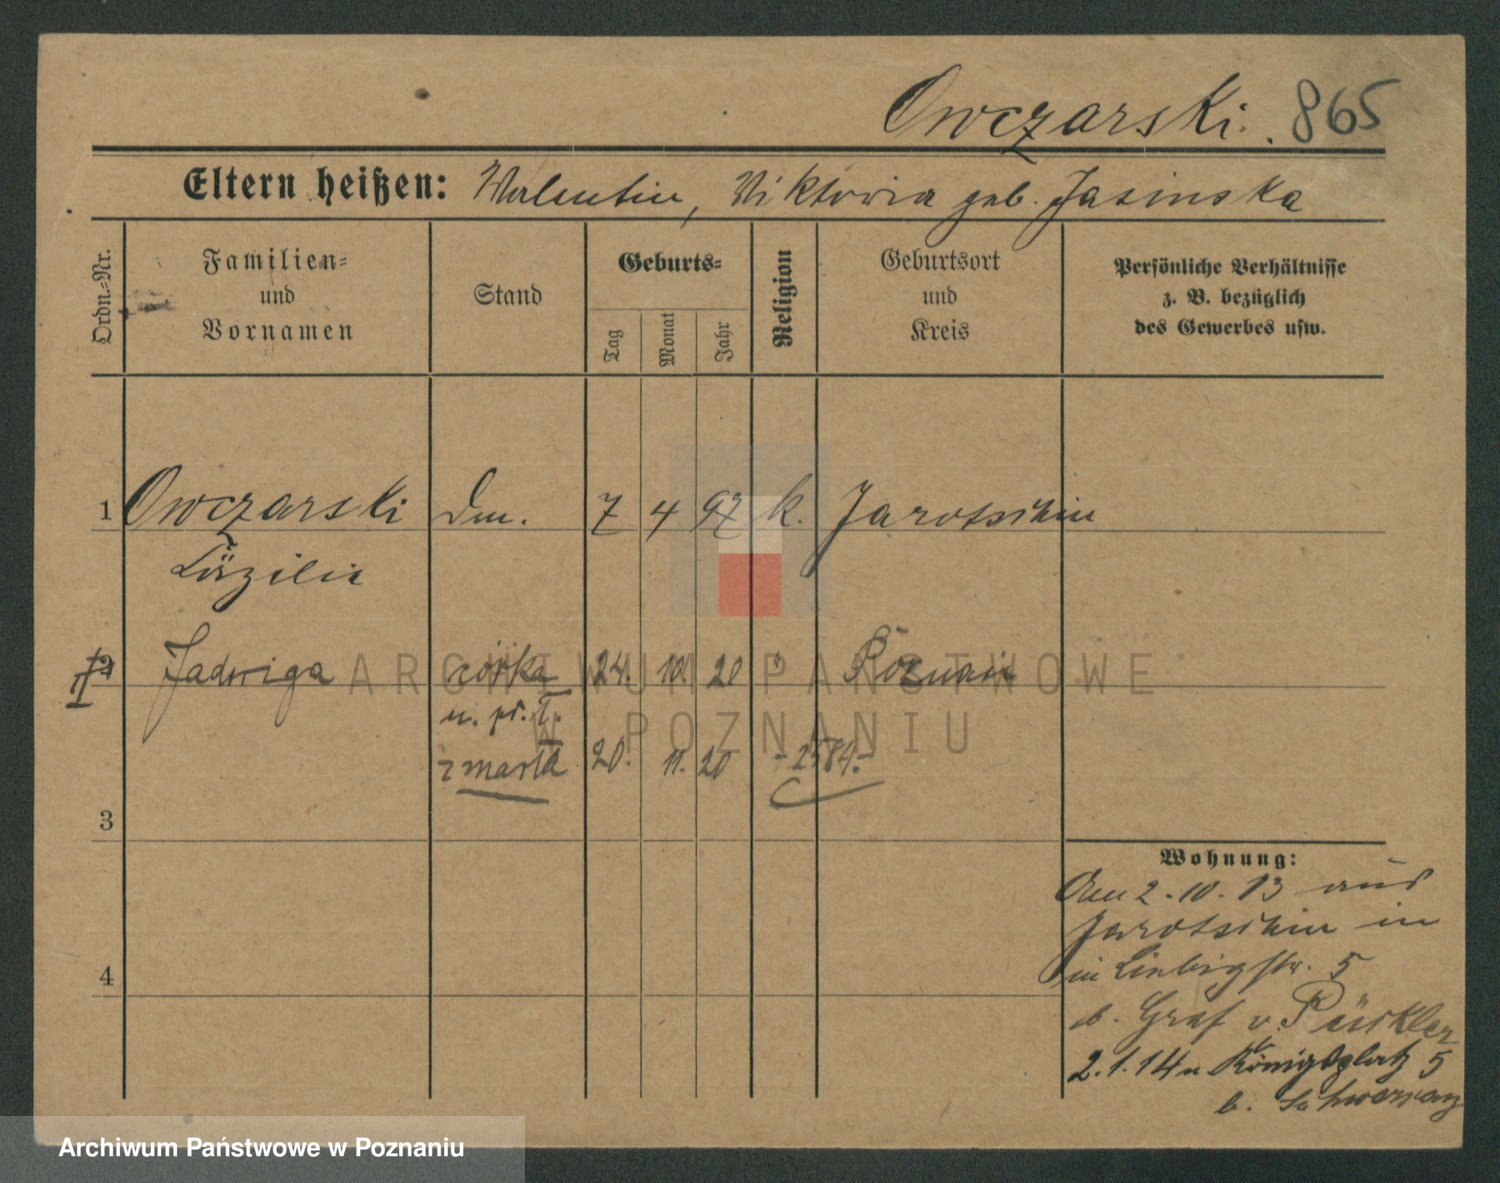 Owczarski. 865
Eltern heißen: Valentin, Viktoria geb. Jasinska
Ordn.-Nr.
Familien-
und
Vornamen
Stand
Geburts-
Tag
Monat
Jahr
Religion
Geburtsort
und
Kreis
Persönliche Verhältnisse
z. B. bezüglich
des Gewerbes usw.
1 Owczarski Dm. 7 4 97 k. Jarotschin
Cäzilie
2 Jadwiga córka 24. 10. 20 " Poznań
n. pr. I.
zmarła 20. 11. 20 - 2584.-
3
4
Wohnung:
Am 2.10.13 aus
Jarotschin in
in Liebigstr. 5
b. Graf v. Pückler
2.1.14 n Königsplatz 5
b.
ARCHIWUM PAŃSTWOWE
W POZNANIU
Archiwum Państwowe w Poznaniu